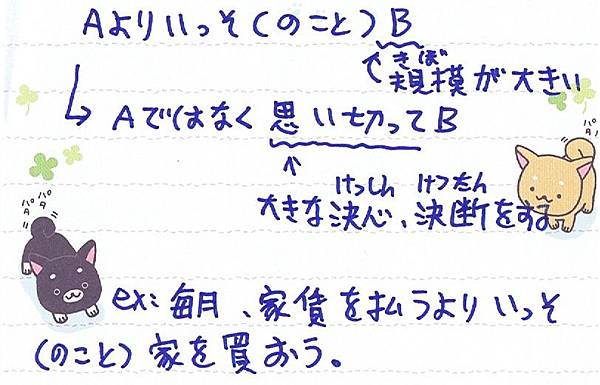 Aよりいっそ(のこと)B
きぼ
規模が大きい
Aではなく思い切ってB
けっしん けつだん
大きな決心、決断をする
パタ パタ
パタ パタ
ex:毎月、家賃を払うよりいっそ
(のこと)家を買おう。